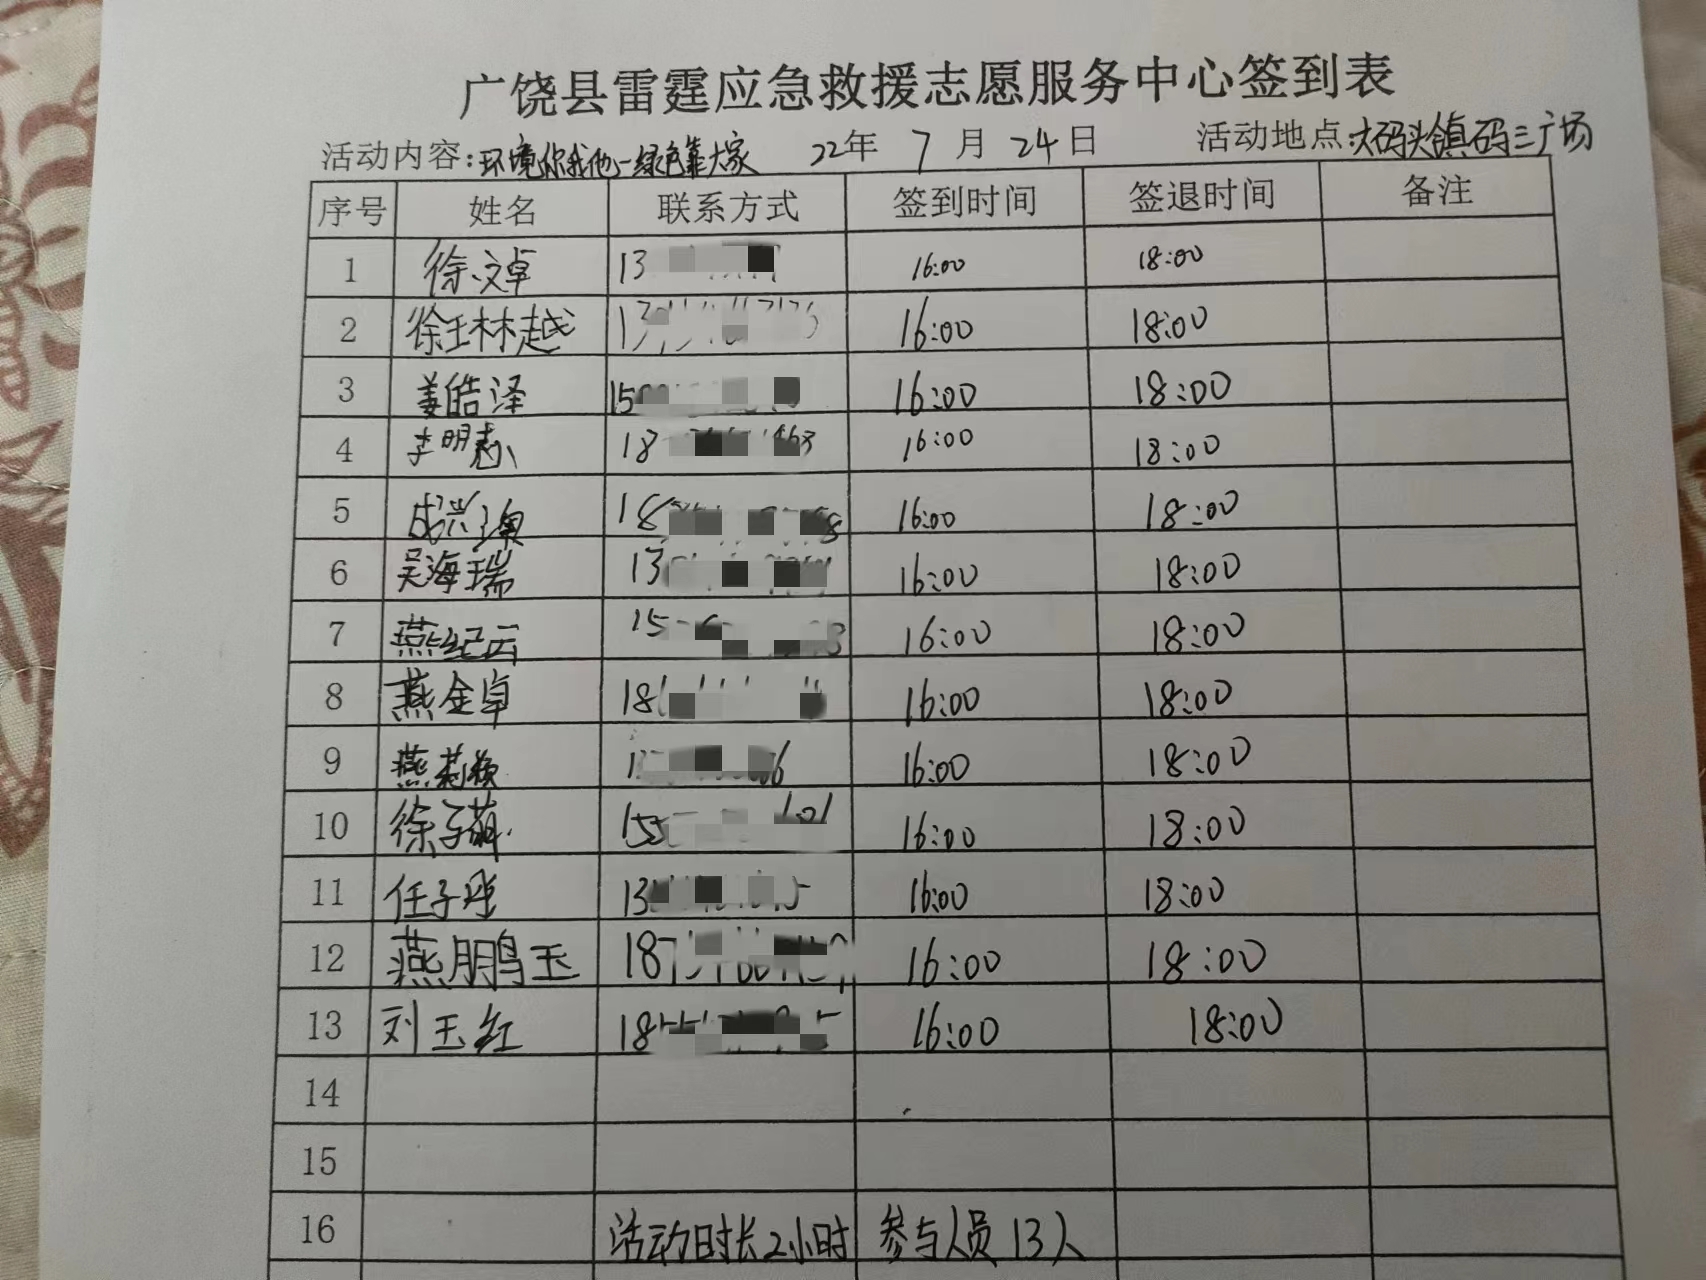 广饶县雷霆应急救援志愿服务中心签到表
活动内容:环境你我他一绿色靠大家 22年 7 月 24日 活动地点:大码头镇码三广场
序号 姓名 联系方式 签到时间 签退时间 备注
1 徐文卓 13 16:00 18:00
2 徐玉林越 13 16:00 18:00
3 姜皓泽 15 16:00 18:00
4 李明志 18 16:00 18:00
5 成兴 18 16:00 18:00
6 吴海瑞 13 16:00 18:00
7 燕纪云 15 16:00 18:00
8 燕金卓 18 16:00 18:00
9 燕莉 1 16:00 18:00
10 徐子萌 15 16:00 18:00
11 任子彤 13 16:00 18:00
12 燕鹏玉 18 16:00 18:00
13 刘玉红 18 16:00 18:00
14
15
16 活动时长2小时 参与人员13人